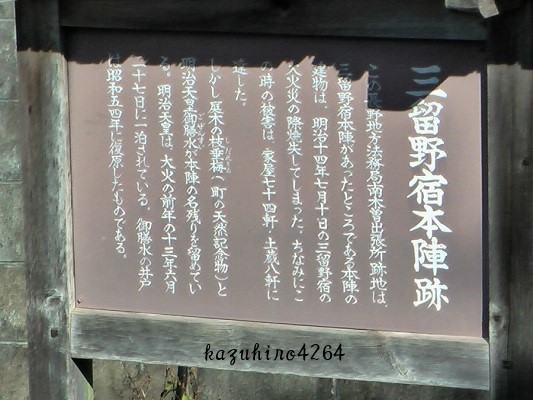 三留野宿本陣跡
この長野地方法務局南木曽出張所跡地は、
三留野宿本陣があったところである。本陣の
建物は、明治十四年七月十日の三留野宿の
大火災の際焼失してしまった。ちなみにこ
の時の被害は、家屋七十四軒・土蔵八軒に
達した。
しかし庭木の枝垂梅(町の天然記念物)と
しだれうめ
明治天皇御膳水が本陣の名残りを留めてい
ごぜんすい
る。明治天皇は、大火の前年の十三年六月
二十七日に一泊されている。御膳水の井戸
は昭和五四年に復原したものである。
kazuhiro4264